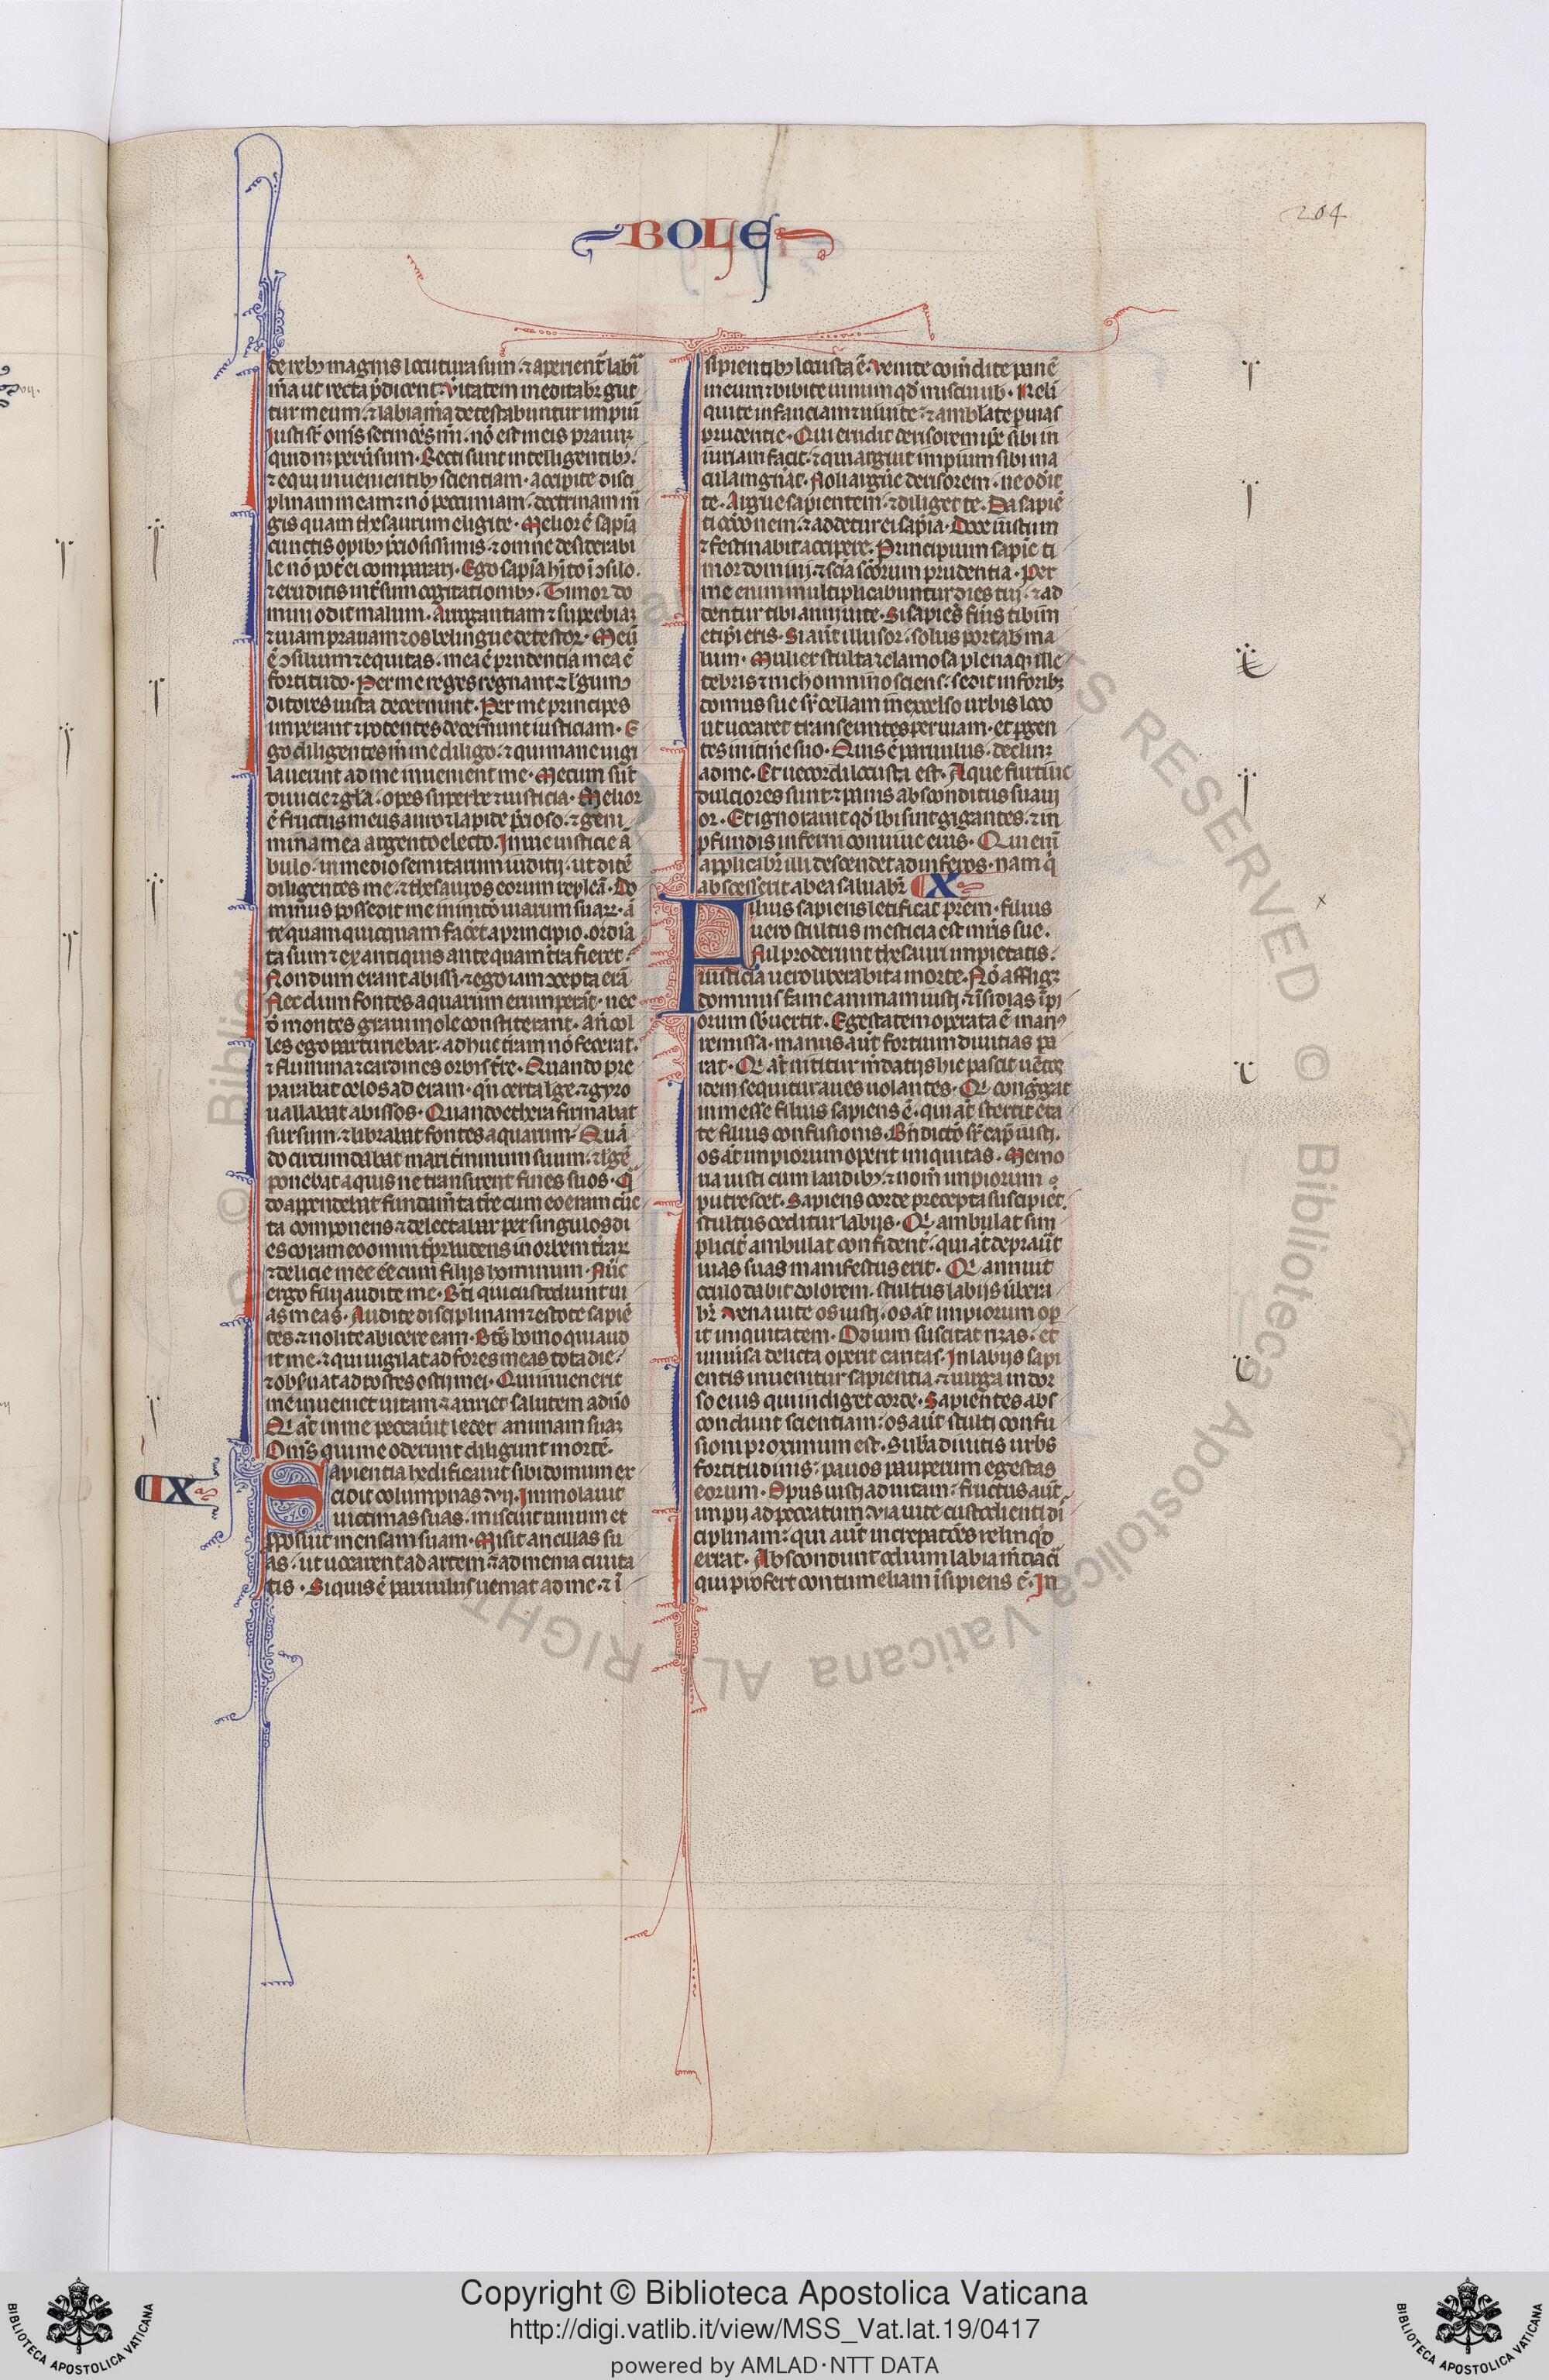 BOLE
204
de reb9 magnis locutura sum. ⁊ aperient̃ labi᷑a
m̃a ut recta p̃dicent. Ũitatem meditab̃ gut
tur meum. ⁊ labia m̃a detestabuntur impiũ
Iusti st̃ om̃s sermões m̃i. nõ est in eis prauuꝫ
quid nꝫ peru̾sum. Recti sunt intelligentib9.
⁊ equi inuenientib9 scientiam. accipite disci
plinam meam ⁊ nõ pecuniam. doctrinam m̃
gis quam thesaurum eligite. Melior ẽ sapĩa
cunctis opib9 p̃ciosissimis. ⁊ omne desiderabi
le nõ pot̃ ei comparari. Ego sapĩa hĩto ĩ ↄsilo.
⁊ eruditis int̃sum cogitationib9. Timor do
mini odit malum. Arrogantiam ⁊ superbiaꝫ
⁊ uiam prauam ⁊ os bilingue detestor. Meũ
ẽ ↄsilium ⁊ equitas. mea ẽ prudentia mea ẽ
fortitudo. Per me reges regnant ⁊ l̾gum ↄ
ditores iusta decernunt. Per me principes
imperant ⁊ potentes decernunt iusticiam. E
go diligentes m̃ me diligo. ⁊ qui mane uigi
lauerint ad me inuenient me. Mecum sũt
diuicie ⁊ gl̃a. opes superbe ⁊ iusticia. Melior
ẽ fructus meus auro ⁊ lapide p̃cioso. ⁊ geni
mina mea argento electo. In uie iusticie ã
bulo. in medio semitarum iudicij. ut ditẽ
diligentes me. ⁊ thesauros eorum repleã. Do
minus possedit me ininito᷑ uiarum suaꝝ. ã
te quam quicquam facet̃ a principio. ordĩa
ta sum ⁊ ex antiquis ante quam t̃ra fieret.
Nondum erant abissi. ⁊ ego iam ↄcepta erã
Nec dum fontes aquarum eruperãt. nec
ỡ montes graui mole constiterant. añ col
les ego parturiebar. adhuc t̃ram nõ fecerat.
⁊ flumina ⁊ cardines orbis t̃re. Quando pre
parabat celos aderam. qñ certa l̾ge. ⁊ gyro
uallabat abissos. Quando ethera firmabat
sursum. ⁊ librabat fontes aquarum. Quã
do circumdabat mari t̾minum suum. ⁊ l̾gẽ
ponebat aquis ne transirent fines suos. Qñ
do appendebat fundam̃ta t̃re cum eo eram cũc
ta componens. ⁊ delectabar per singulos di
es coram eo omni tp̃r ludens in orbem t̃raꝝ
⁊ delicie mee eẽ cum filijs hominum. Nũc
ergo filij audite me. Bt̃i qui custodiunt ui
as meas. Audite disciplinam ⁊ estote sapiẽ
tes. ⁊ nolite abicere eam. Bt̃s homo qui aud
it me. ⁊ qui uigilat ad fores meas tota die.
⁊ obs̃uat ad postes ostij mei. Qui inuenerit
me inueniet uitam. ⁊ auriet salutem a dño
Qi aũt in me peccau̾it ledet animam suaꝫ
Om̃s qui me oderunt diligunt mortẽ.
IX
Sapientia hedificauit sibi domum ex
cidit columpnas vij. Immolauit
uictimas suas. miscuit uinum et
p̃posuit mensam suam. Misit ancillas su
as. ut uocarent ad artem ⁊ ad menia ciuita
tis. Siquis ẽ paruulus ueniat ad me. ⁊ ĩ
sipientib9 locuta ẽ. Venite comẽdite panẽ
meum ⁊ bibite uinum qd̃ miscui uob̃. Reli
quite infanciam ⁊ uiuite. ⁊ amblate p uias
prudentie. Qui erudit derisorem ip̃e sibi in
iuriam facit. ⁊ qui arguit impium sibi ma
culam gñat. Noli argũe derisorem. ne odĩt
te. Argue sapientem. ⁊ diliget te. Da sapiẽ
ti occõnem. ⁊ addetur ei sapĩa. Doce iustum
⁊ festinabit accipere. Principium sapiẽ ti
mor domini. ⁊ scĩa scõrum prudentia. Per
me enim multiplicabuntur dies tui. ⁊ ad
dentur tibi anni uite. Si sapiẽs fũis tibim
etip̃i eris. Si aũt illusor. solus portab̾ ma
lum. Mulier stulta ⁊ clamosa plenaqꝫ ille
cebris ⁊ nichom̃ino sciens. sedit in forib9
domus sue sr̃ cellam in excelso urbis loco
ut uocaret transeuntes per uiam. et p̃gen
tes initiñe suo. Quis ẽ paruulus. declinꝫ
ad me. Et uecordi locuta est. Aque furtiue
dulciores sunt ⁊ panis absconditus suaui
or. Et ignorauit qd̃ ibi sint gigantes. ⁊ in
p̃fundis inferni conuiue eius. Qui eni᷑
applicab̾ illi descendet ad inferos. nam q̃
abscesserit ab ea saluab̾r X
Filius sapiens letificat prẽm. filius
uero stultus mesticia est mr̃is sue.
Nil proderunt thesauri impietatis.
iusticia uero liberabit a morte. Nõ affligꝫ
dominus fame animam iusti. ⁊ ĩsidias ĩpi
orum sb̾uertit. Egestatem operata ẽ man9
remissa. manus aũt fortium diuitias pa
rat. Qi aũt nititur m̃datijs hic pascit uẽtos
idem sequitur aues uolantes. Qi cong̾gat
in messe filius sapiens ẽ. qui aũt stertit ẽta
te filius confusionis. Bñdictõ sr̃ cap̃ iusti.
os aũt impiorum operit iniquitas. Memo
ria iusti cum laudib9. ⁊ nom̃ impiorum
putrescet. Sapiens corde precepta suscipiet.
stultus ceditur labijs. Qi ambulat sim
plicit̃ ambulat confident̃. qui aũt deprauat
uias suas manifestus erit. Qi annuit
oculo dabit dolorem. stultus labijs ũbera
b̾r. Vena uite os iusti. os aũt impiorum op̃
it iniquitatem. Odium suscitat rixas. et
uniũsa delicta operit caritas. In labijs sapi
entis inuenitur sapientia. ⁊ uirga in dor
so eius qui indiget corde. Sapientes abs
condunt scientiam. os aũt stulti confu
sioni proximum est. Sub̾a diuitis urbs
fortitudinis. pauos pauperum egestas
eorum. Opus iusti ad uitam. fructus aũt
impij ad peccatum. Via uite custodienti di
ciplinam. qui aũt increpacõẽs relinqd̾
errat. Abscondunt odium labia m̃dacia
qui profert contumeliam ĩsipiens ẽ. In
Copyright © Biblioteca Apostolica Vaticana
http://digi.vatlib.it/view/MSS_Vat.lat.19/0417
powered by AMLAD·NTT DATA
BIBLIOTECA APOSTOLICA VATICANA
BIBLIOTECA APOSTOLICA VATICANA